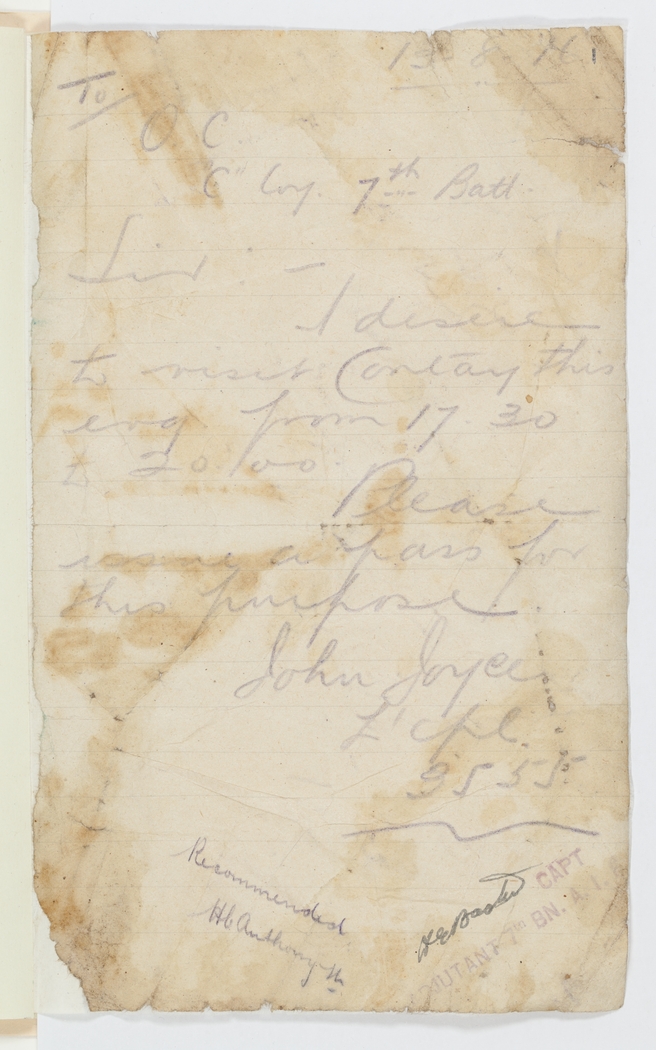 13 8 
To/
O C
"C" Coy. 7th Batt.
Sir :-
I desire
to visit Contay this
evg from 17.30
to 20.00.
Please
issue a pass for
this purpose.
John Joyce
L'cpl.
3555
Recommended
CAPT
7TH BN. A. I.